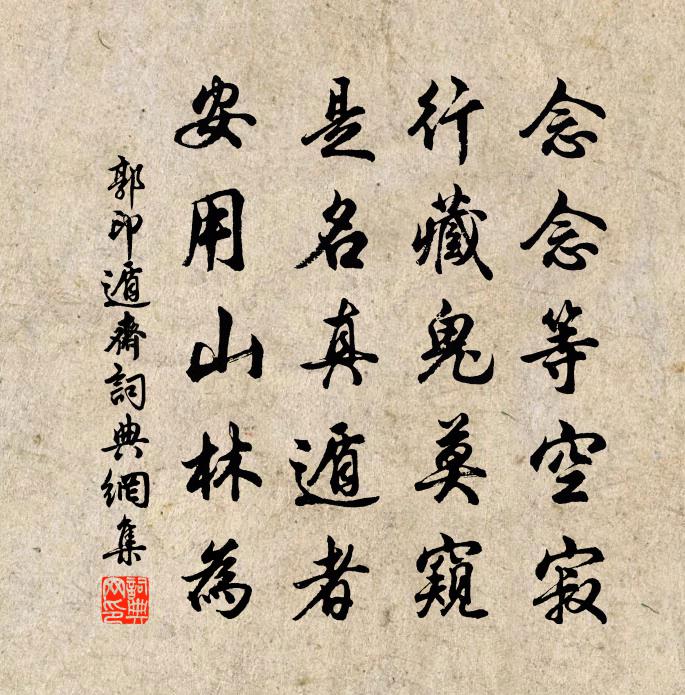 念念等空寂
行藏鬼莫窺
是名真遁者
安用山林為
郭印遁齋詞典網集
詞典網印